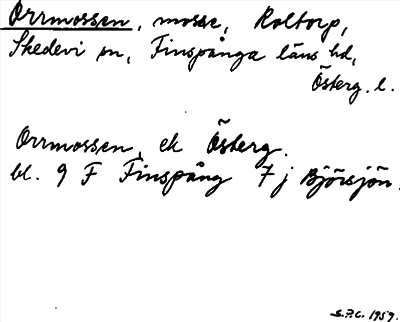 Orrmossen, mosse, Roltorp,
Skedevi sn, Finspånga läns hd,
Österg. l.
Orrmossen, ek Österg.
bl. 9 F Finspång 7 j Björsjön.
S.P.C. 1959.